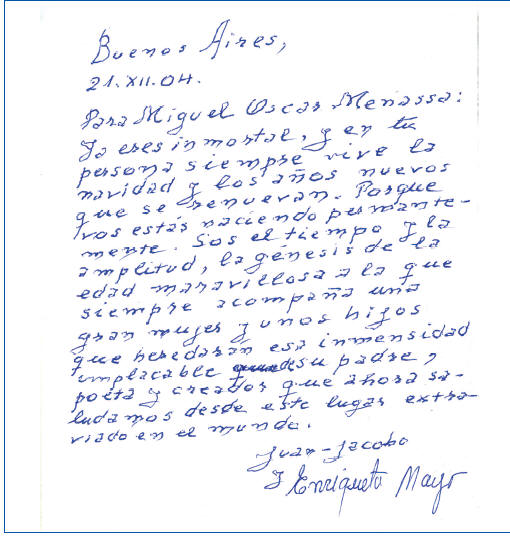 Buenos Aires,
21.XII.04.
Para Miguel Oscar Menassa:
Ya eres inmortal, y en tu
persona siempre vive la
navidad y los años nuevos
que se renuevan. Porque
vos estás naciendo permante-
mente. Sos el tiempo y la
amplitud, la génesis de la
edad maravillosa a la que
siempre acompaña una
gran mujer y unos hijos
que heredarán esa inmensidad
implacable de su padre,
poeta y creador que ahora sa-
ludamos desde este lugar extra-
viado en el mundo.
Juan-Jacobo
y Enriqueta Mayo